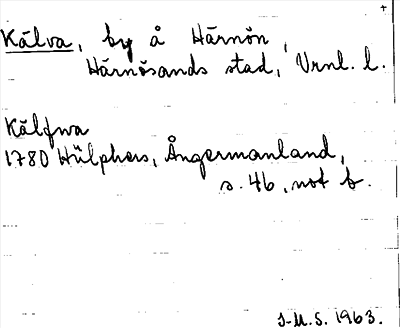 Kälva, by å Härnön,
Härnösands stad, Vrnl. l.
Kälfwa
1780 Hülphers, Ångermanland,
s. 46, not b.
J-M.S. 1963.